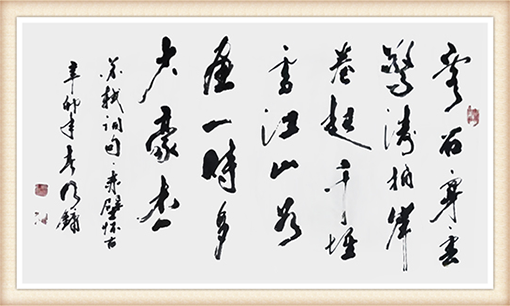 亂石穿空
驚濤拍岸
卷起千堆
雪江山如
畫一時多
少豪杰
苏轼词句赤壁怀古
辛卯年春